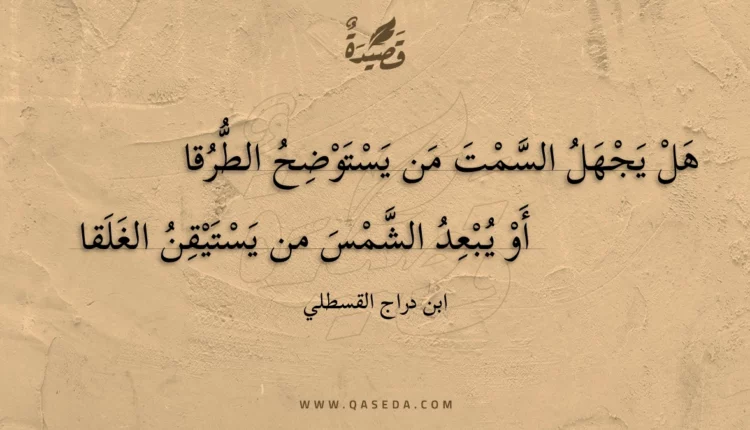 قَصِيْدَةٌ
هَلْ يَجْهَلُ السَّمْتَ مَن يَسْتَوْضِحُ الطُّرُقا
أَوْ يُبْعِدُ الشَّمْسَ من يَسْتَيْقِنُ الغَلَقا
ابن دراج القسطلي
WWW.QASEDA.COM